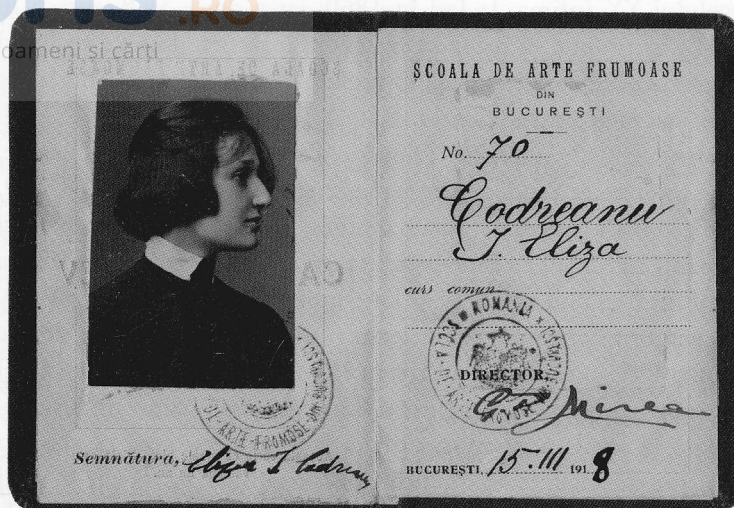 .RO
oameni si cărți
Semnătura, Eliza I Codreanu
ȘCOALA DE ARTE FRUMOASE
DIN
BUCUREȘTI
No. 70
Codreanu
I. Eliza
curs comun
ROMANIA
DIRECTOR,
G. D. Mirea
BUCUREȘTI, 15.III 1918